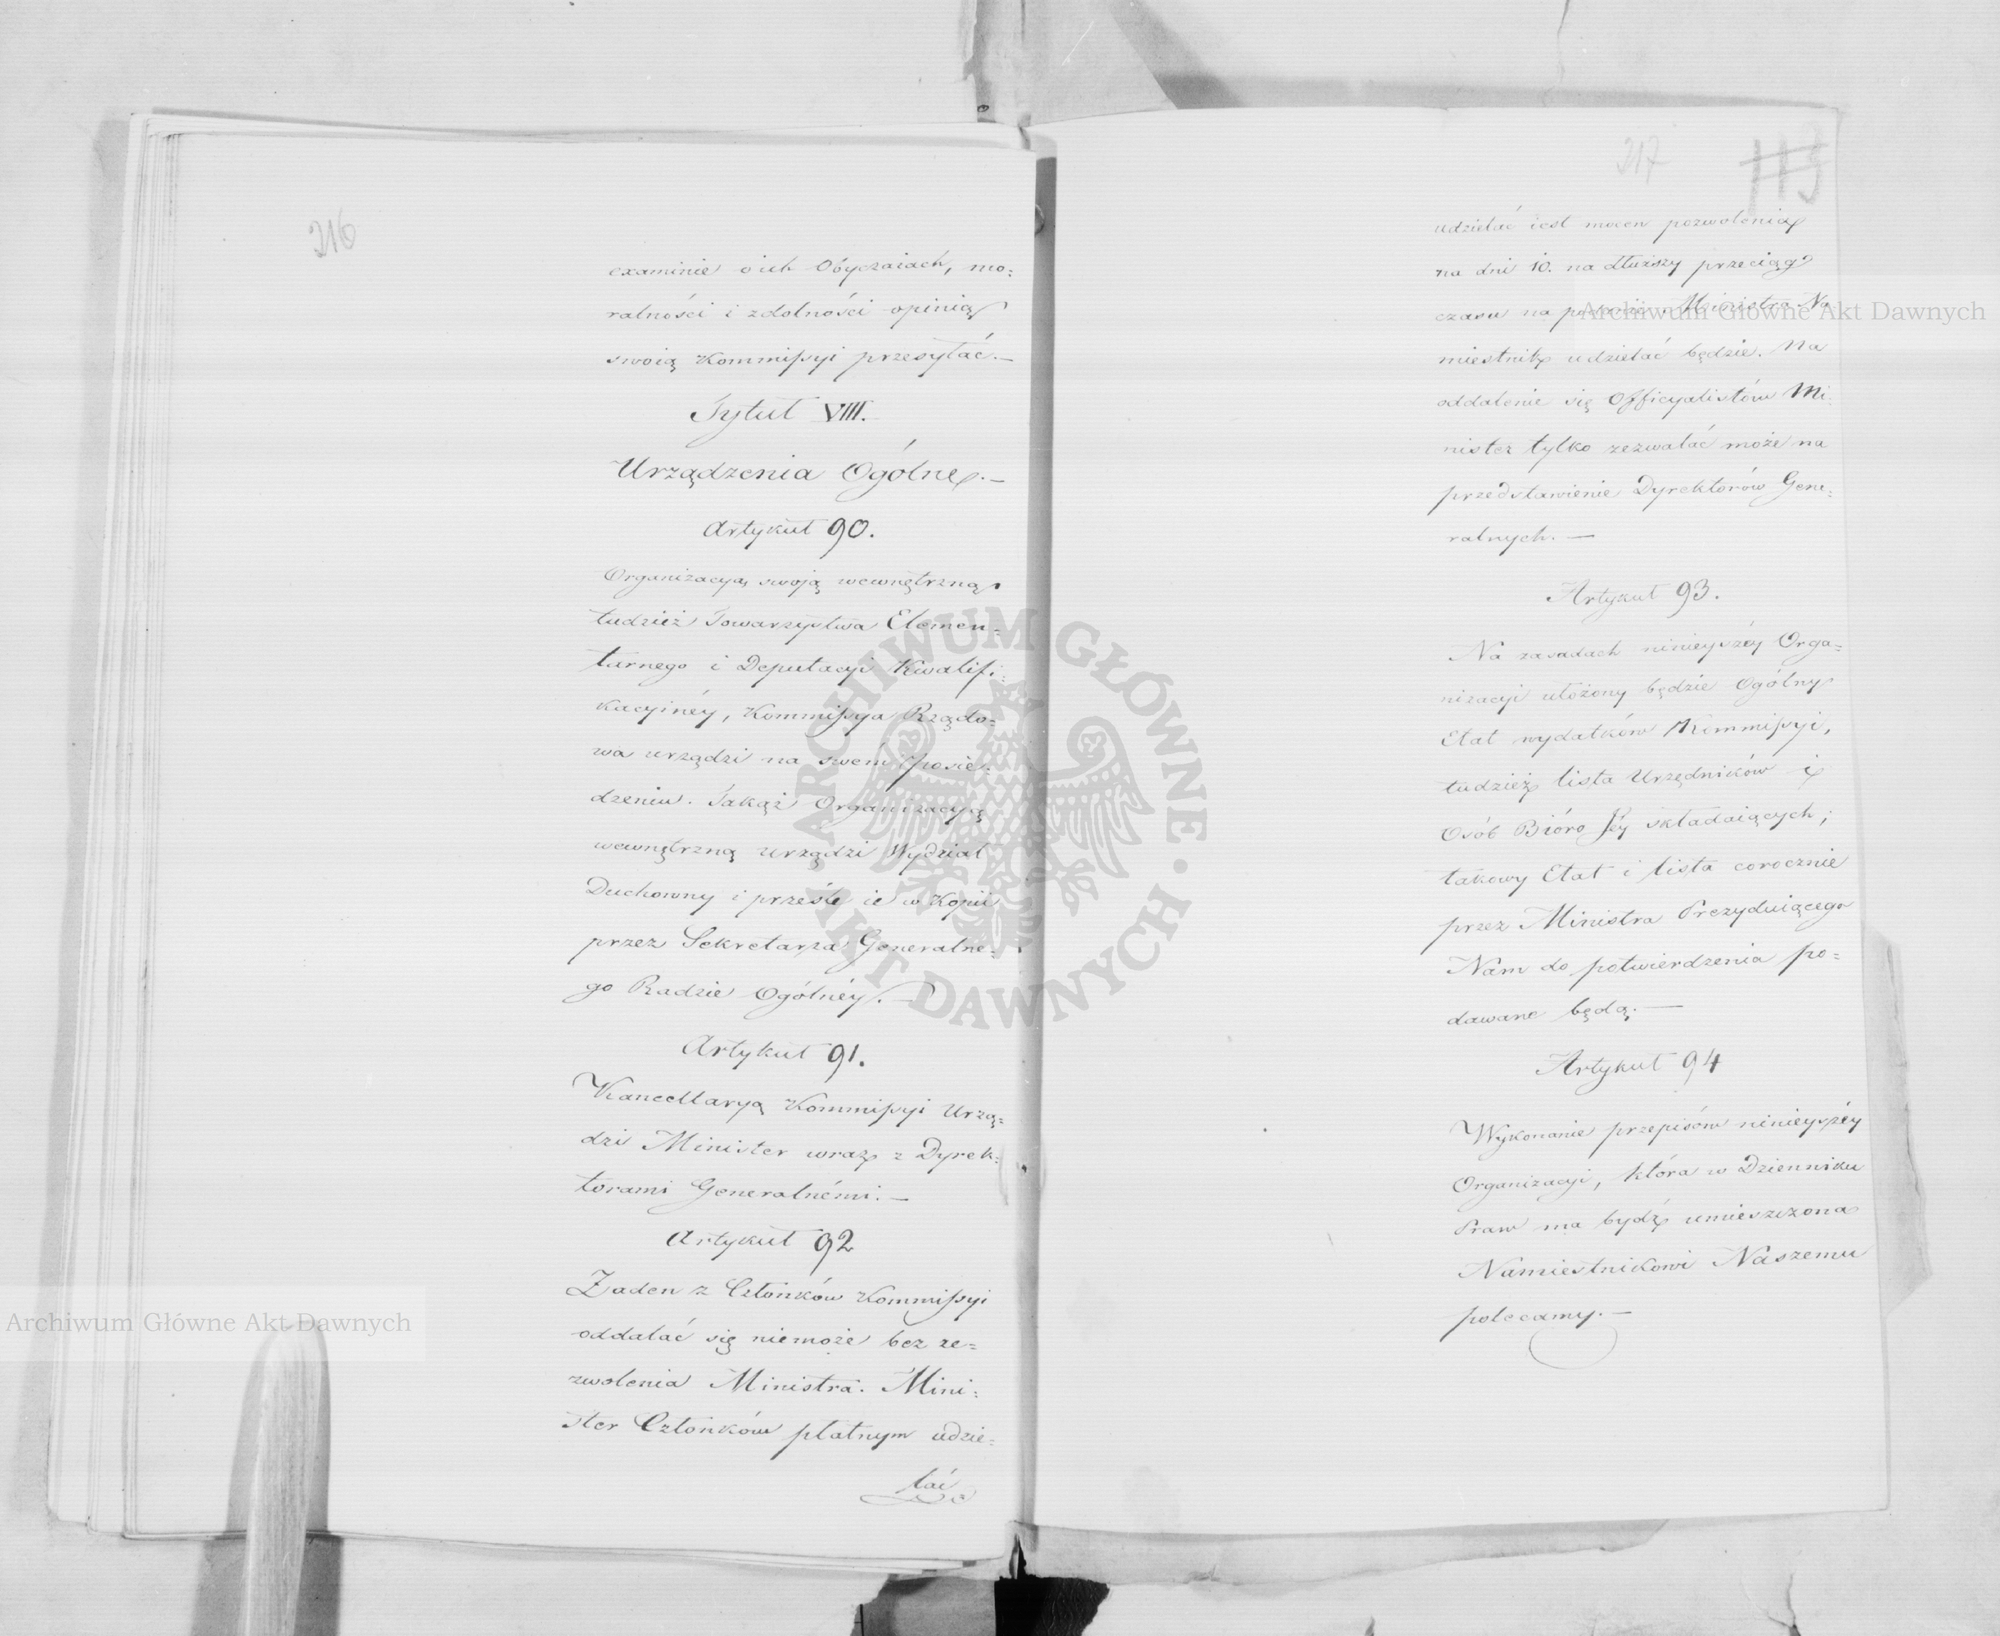 216
examinie o ich Obyczaiach, mo=
ralności i zdolności opinią
swoią Kommissyi przesyłać.—
Tytuł VIII.
Urządzenia Ogólne.—
Artykuł 90.
Organizacyą swoją wewnętrzną
tudzież Towarzystwa Elemen=
tarnego i Deputacyi Kwalifi=
kacyinéy, Kommissya Rządo=
wa urządzi na swém Posie=
dzeniu. Takąż Organizacyą
wewnętrzną urządzi Wydział
Duchowny i prześle ie w Kopii
przez Sekretarza Generalne=
go Radzie Ogólnéy.—
Artykuł 91.
Kancellaryą Kommissyi Urzą=
dzi Minister wraz z Dyrek=
torami Generalnémi.—
Artykuł 92
Żaden z Członków Kommissyi
oddalać się niemoże bez ze=
zwolenia Ministra. Mini=
ster Członków płatnym udzie=
lać
217
113
udzielać iest mocen pozwolenia
na dni 10. na dłuższy przeciąg
czasu na Ministra Na
miestnik udzielać będzie. Na
oddalenie się Officyalistów Mi=
nister tylko zezwalać może na
przedstawienie Dyrektorów Gene=
ralnych.—
Artykuł 93.
Na zasadach ninieyszéy Orga=
nizacyi ułożony będzie Ogólny
Etat wydatków Kommissyi,
tudzież lista Urzędników i
Osób Bióro Jéy składaiących;
takowy Etat i lista corocznie
przez Ministra Prezyduiącego
Nam do potwierdzenia po=
dawane będą.—
Artykuł 94
Wykonanie przepisów ninieyszéy
Organizacyi, która w Dzienniku
Praw ma bydź umieszczona
Namiestnikowi Naszemu
polecamy.—
Archiwum Główne Akt Dawnych
Archiwum Główne Akt Dawnych
ARCHIWUM GŁÓWNE · AKT DAWNYCH ·